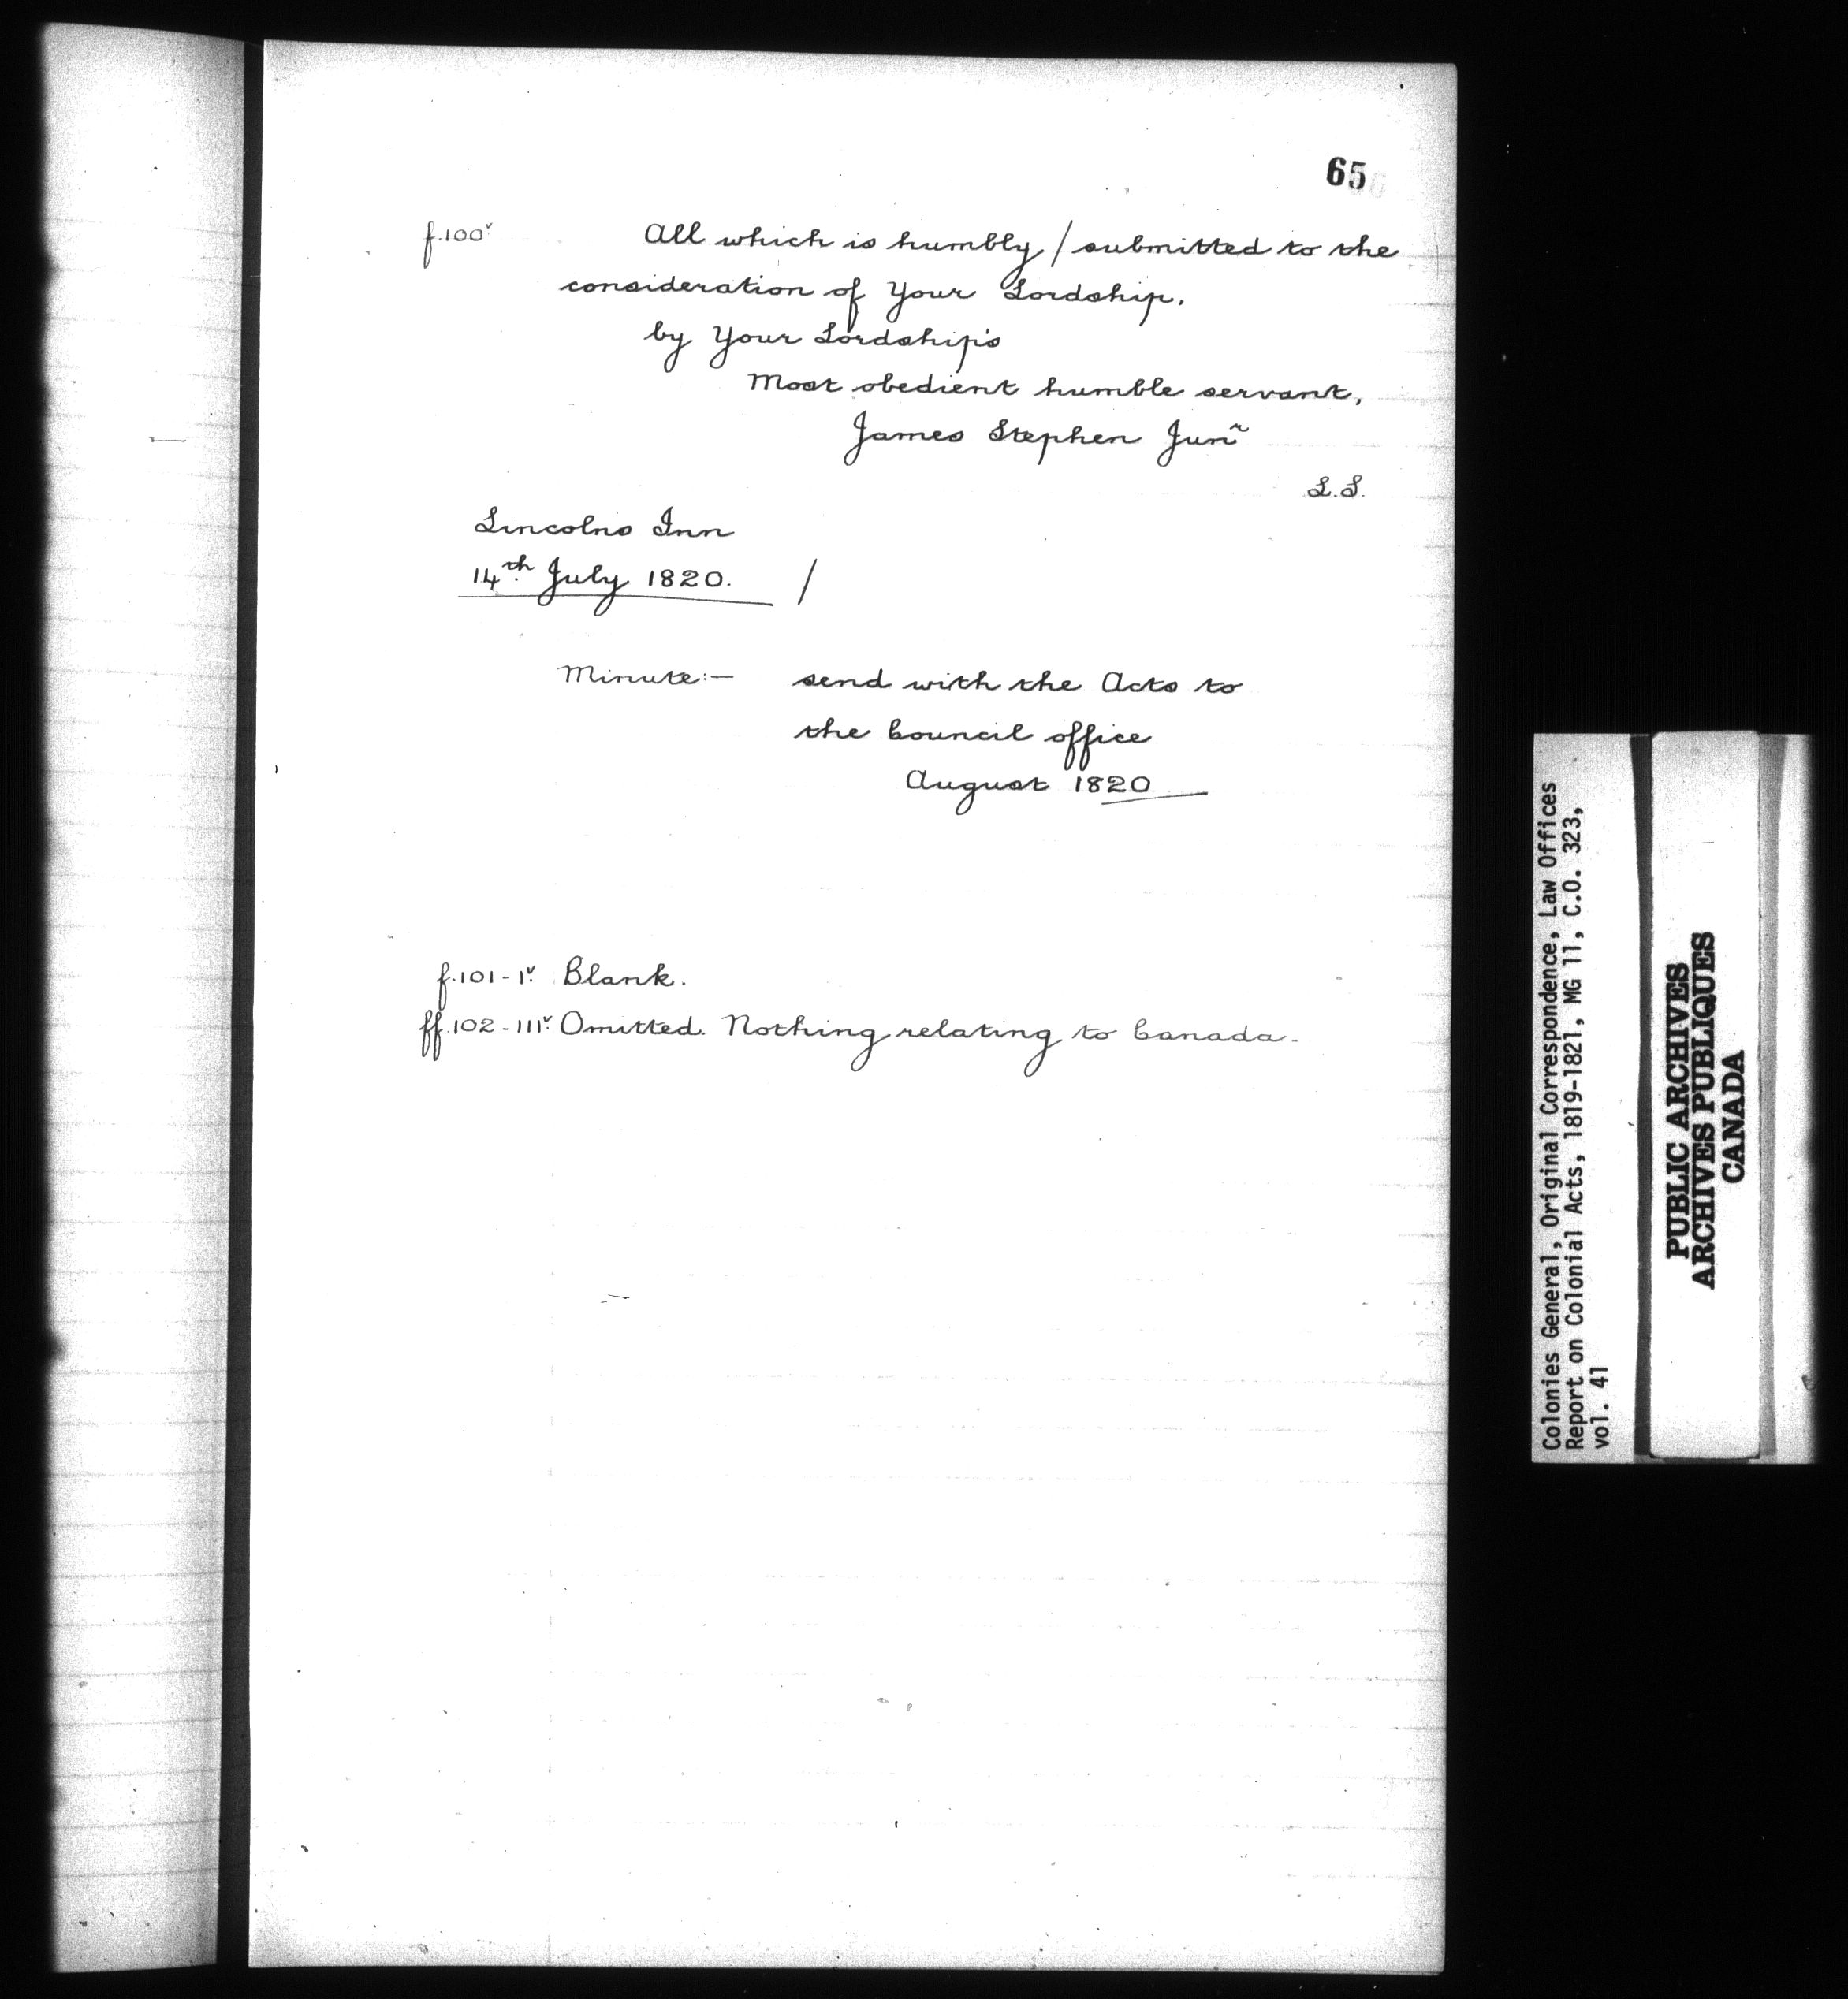 65
f.100v All which is humbly / submitted to the
consideration of Your Lordship.
by Your Lordship's
Most obedient humble servant,
James Stephen Junr
L.S.
Lincolns Inn
14th July 1820. /
Minute:— send with the Acts to
the Council office
August 1820
f.101-1v. Blank.
ff.102-111v. Omitted. Nothing relating to Canada.
Colonies General, Original Correspondence, Law Offices
Report on Colonial Acts, 1819-1821, MG 11, C.O. 323,
vol. 41
PUBLIC ARCHIVES
ARCHIVES PUBLIQUES
CANADA